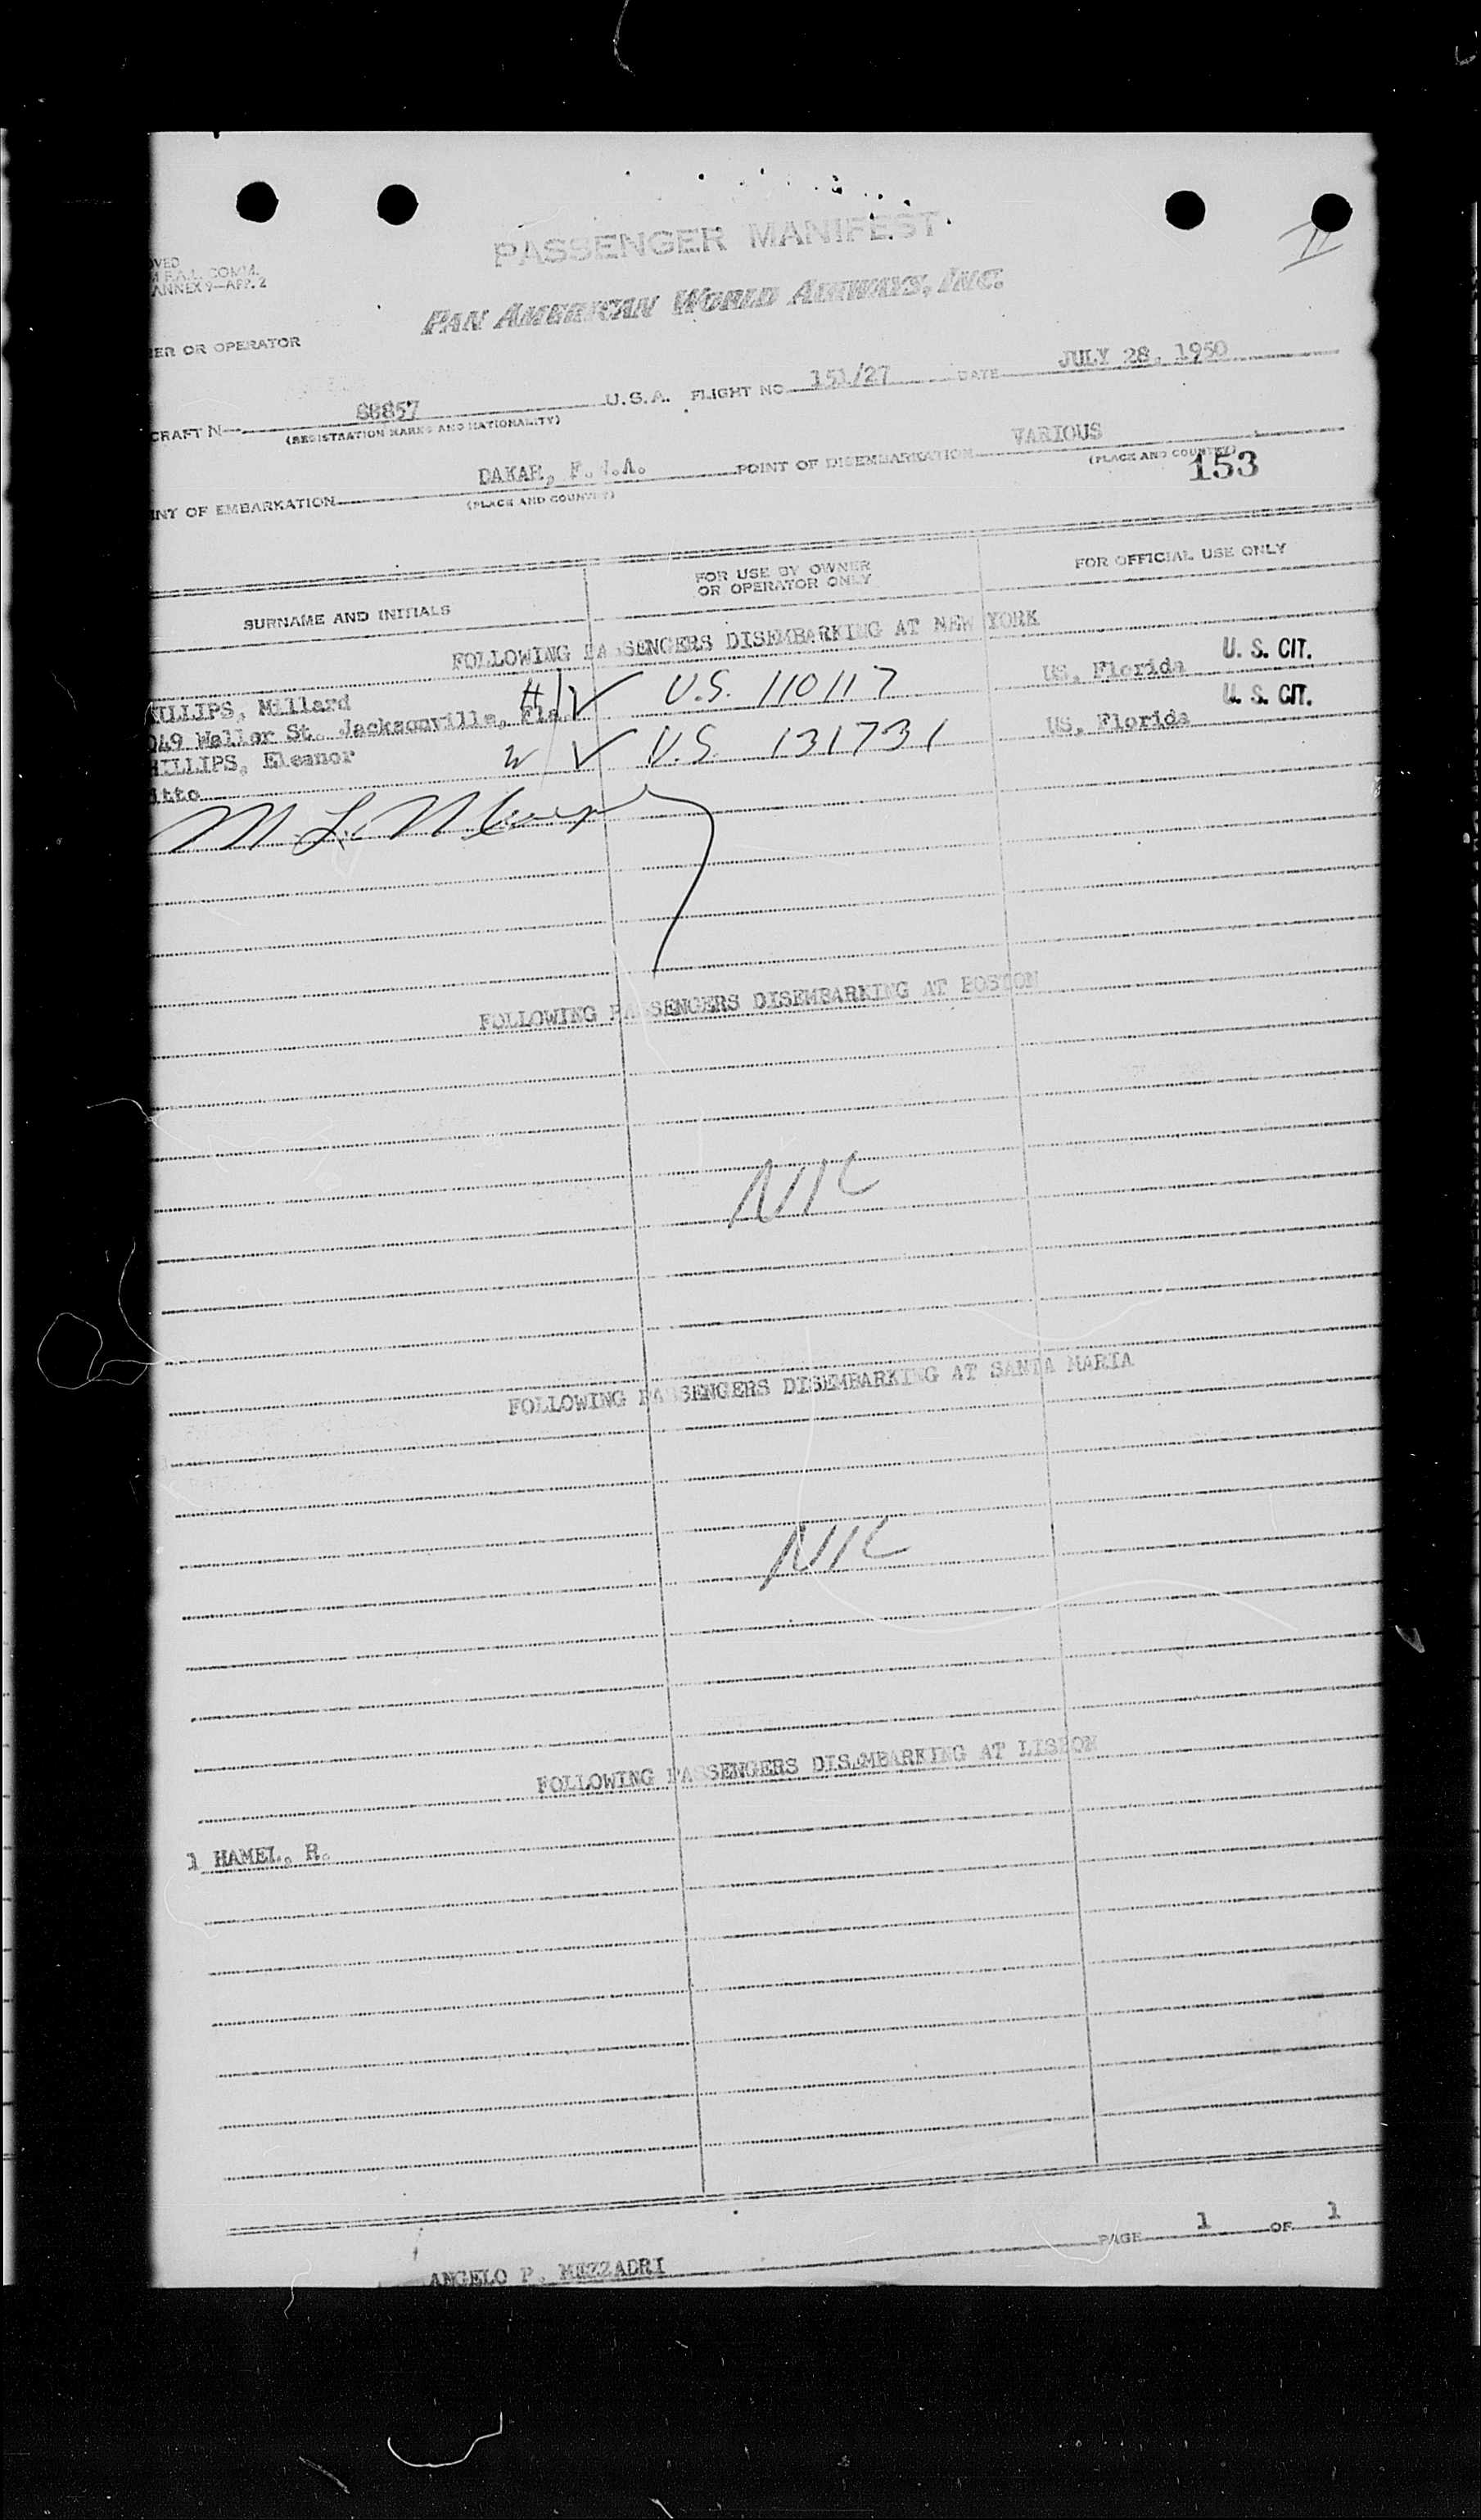 PASSENGER MANIFEST
II
OVED
M F.A.L. COMM.
ANNEX 9—APP. 2
PAN AMERICAN WORLD AIRWAYS, INC.
ER OR OPERATOR
CRAFT N— 88857 U.S.A. FLIGHT NO. 151/27 DATE JULY 28, 1950
(REGISTRATION MARKS AND NATIONALITY)
INT OF EMBARKATION DAKAR, F.W.A. POINT OF DISEMBARKATION VARIOUS
(PLACE AND COUNTRY) (PLACE AND COUNTRY)
153
SURNAME AND INITIALS FOR USE BY OWNER OR OPERATOR ONLY FOR OFFICIAL USE ONLY
FOLLOWING PASSENGERS DISEMBARKING AT NEW YORK
ILLIPS, Millard H/ V U.S. 110117 US, Florida U. S. CIT.
049 Waller St. Jacksonville, Fla.
HILLIPS, Eleanor W/ V U.S. 131731 US, Florida U. S. CIT.
itto
FOLLOWING PASSENGERS DISEMBARKING AT BOSTON
NIL
FOLLOWING PASSENGERS DISEMBARKING AT SANTA MARIA
NIL
FOLLOWING PASSENGERS DISEMBARKING AT LISBON
1 HAMEL, R.
PAGE 1 OF 1
ANGELO P. MEZZADRI